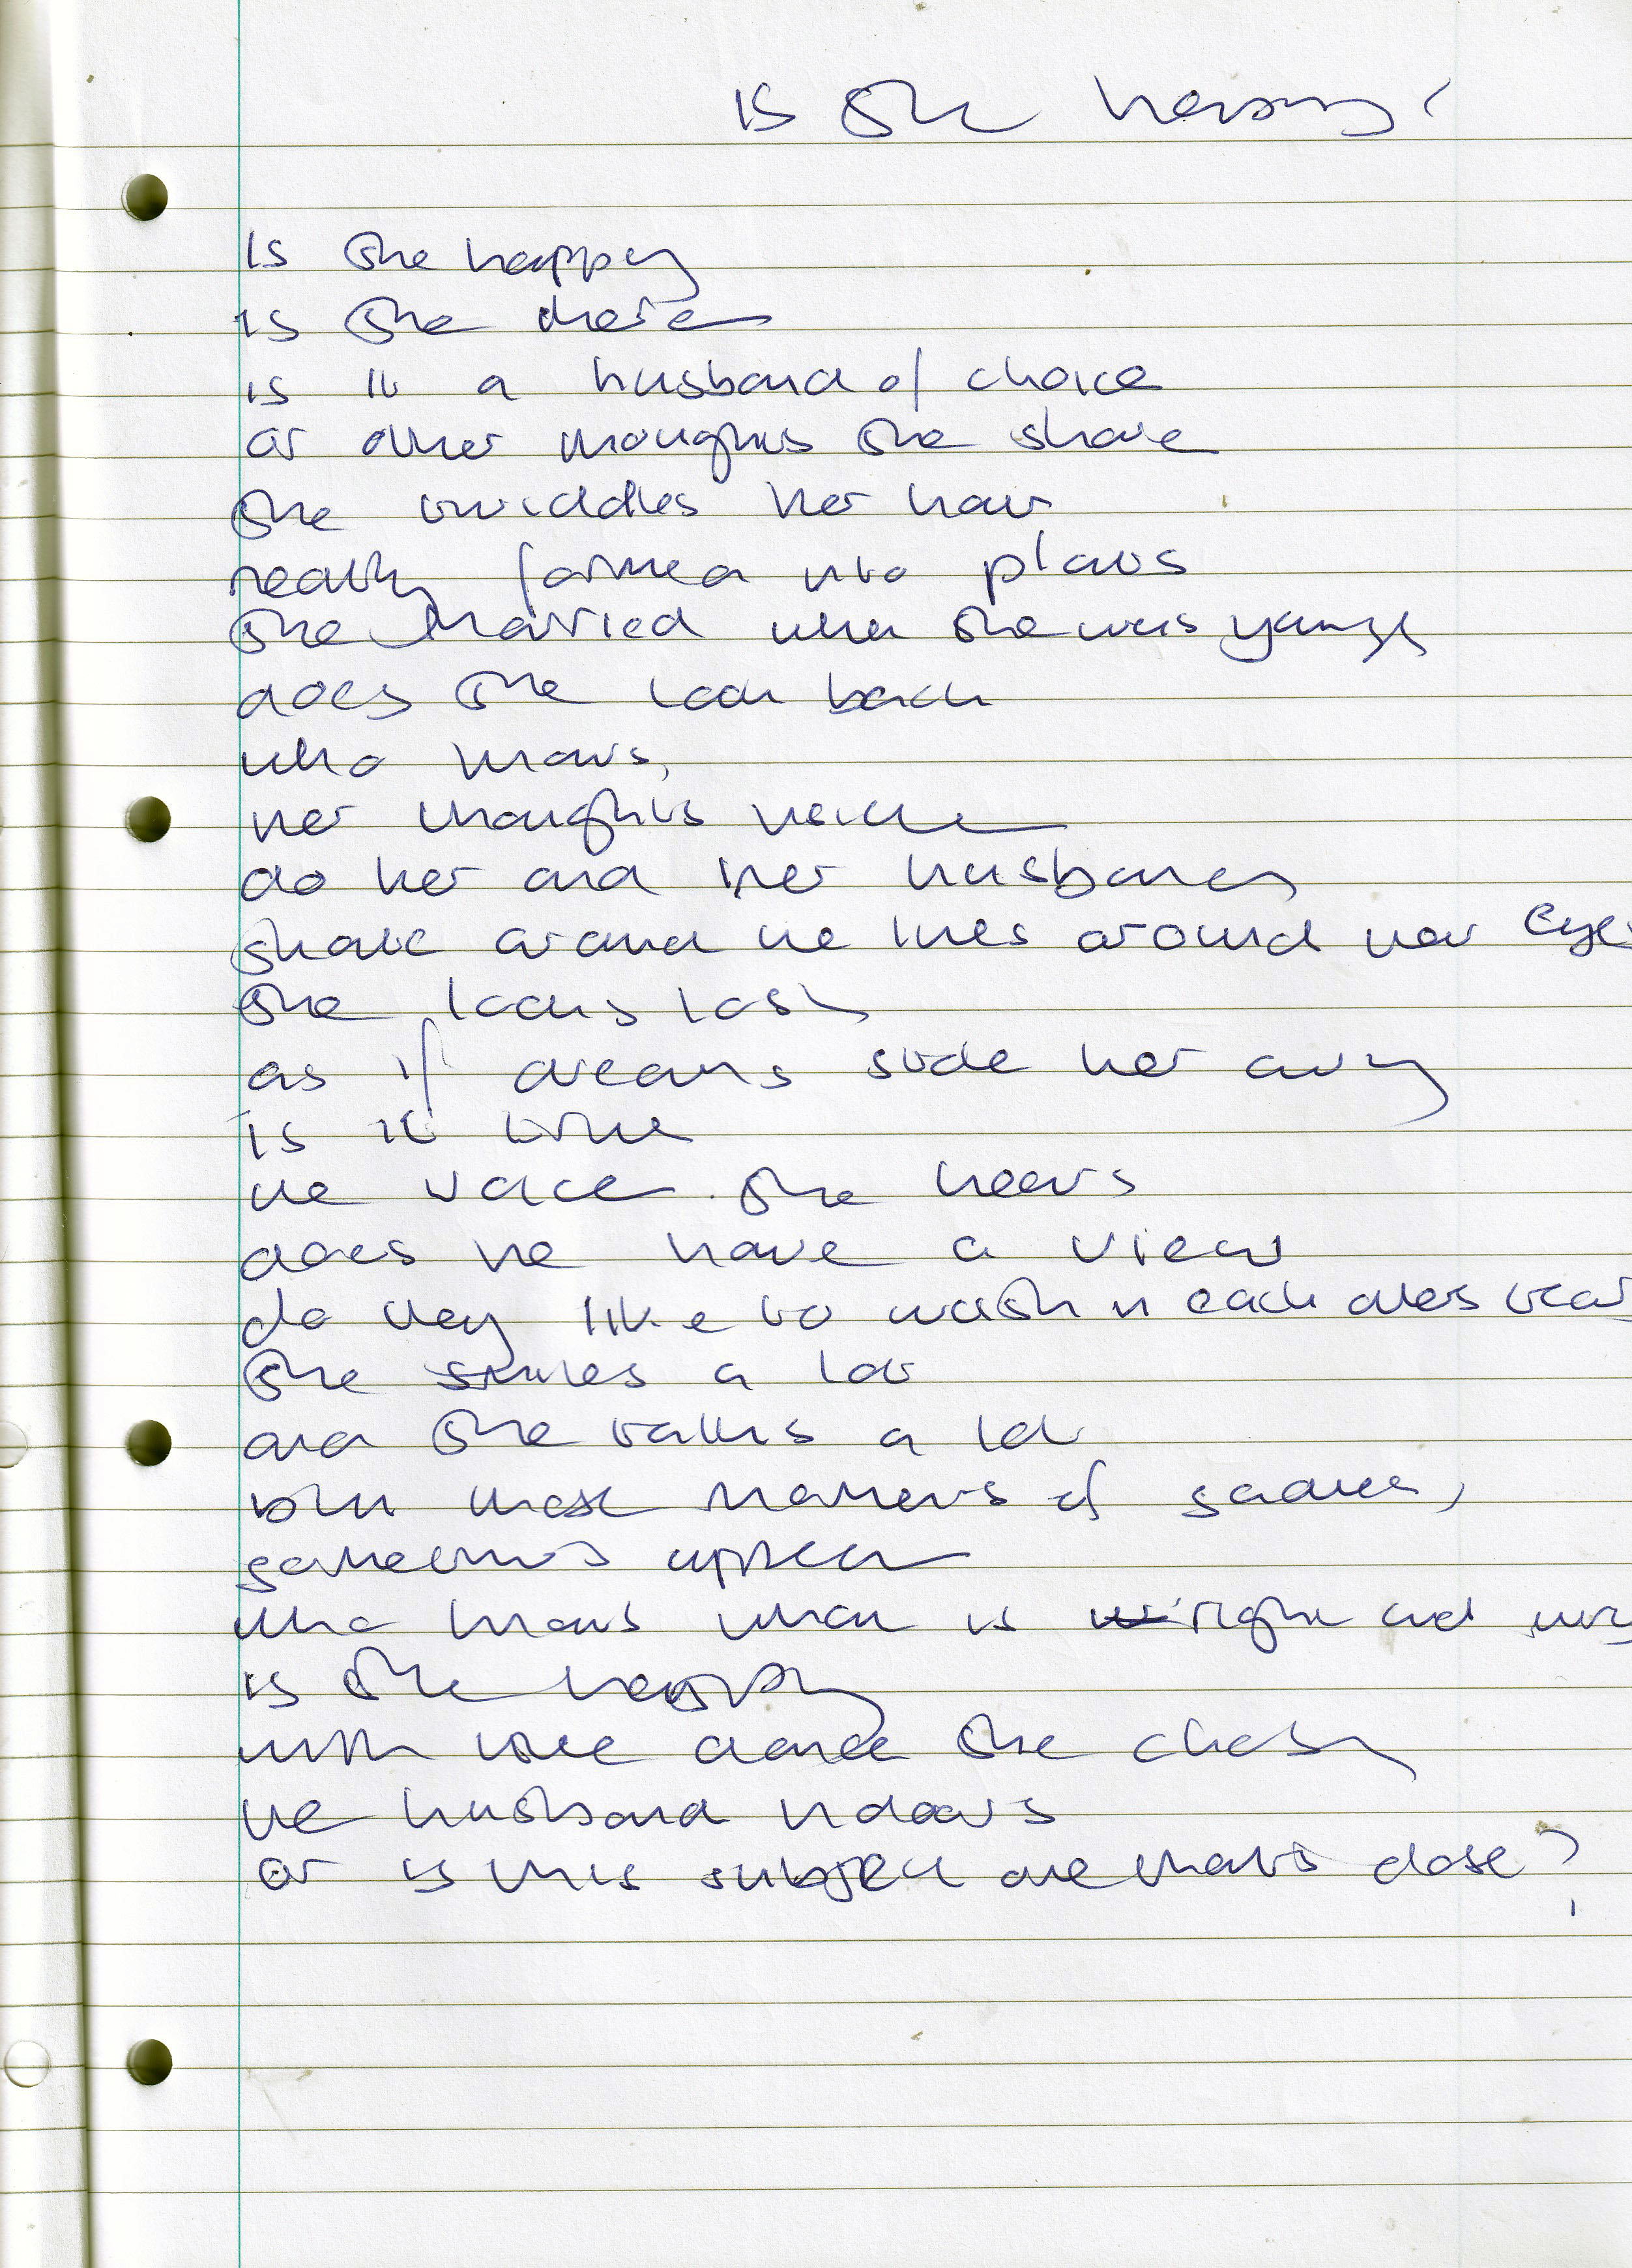 Is she happy?
Is she happy
is she there
is it a husband of choice
or other thoughts she share
she twiddles her hair
neatly formed into plaits
she married when she was young
does she look back
who knows,
her thoughts
do her and her husband
share around the lines around her eyes
she looks lost
as if dreams stole her away
is it true
the voice she hears
does he have a view
do they like to wash in each others tears
she smiles a lot
and she talks a lot
but these moments of sadness,
sometimes appear
who knows what is right and wrong
is she happy
with love and she chose
the husband indoors
or is this subject one thats close?